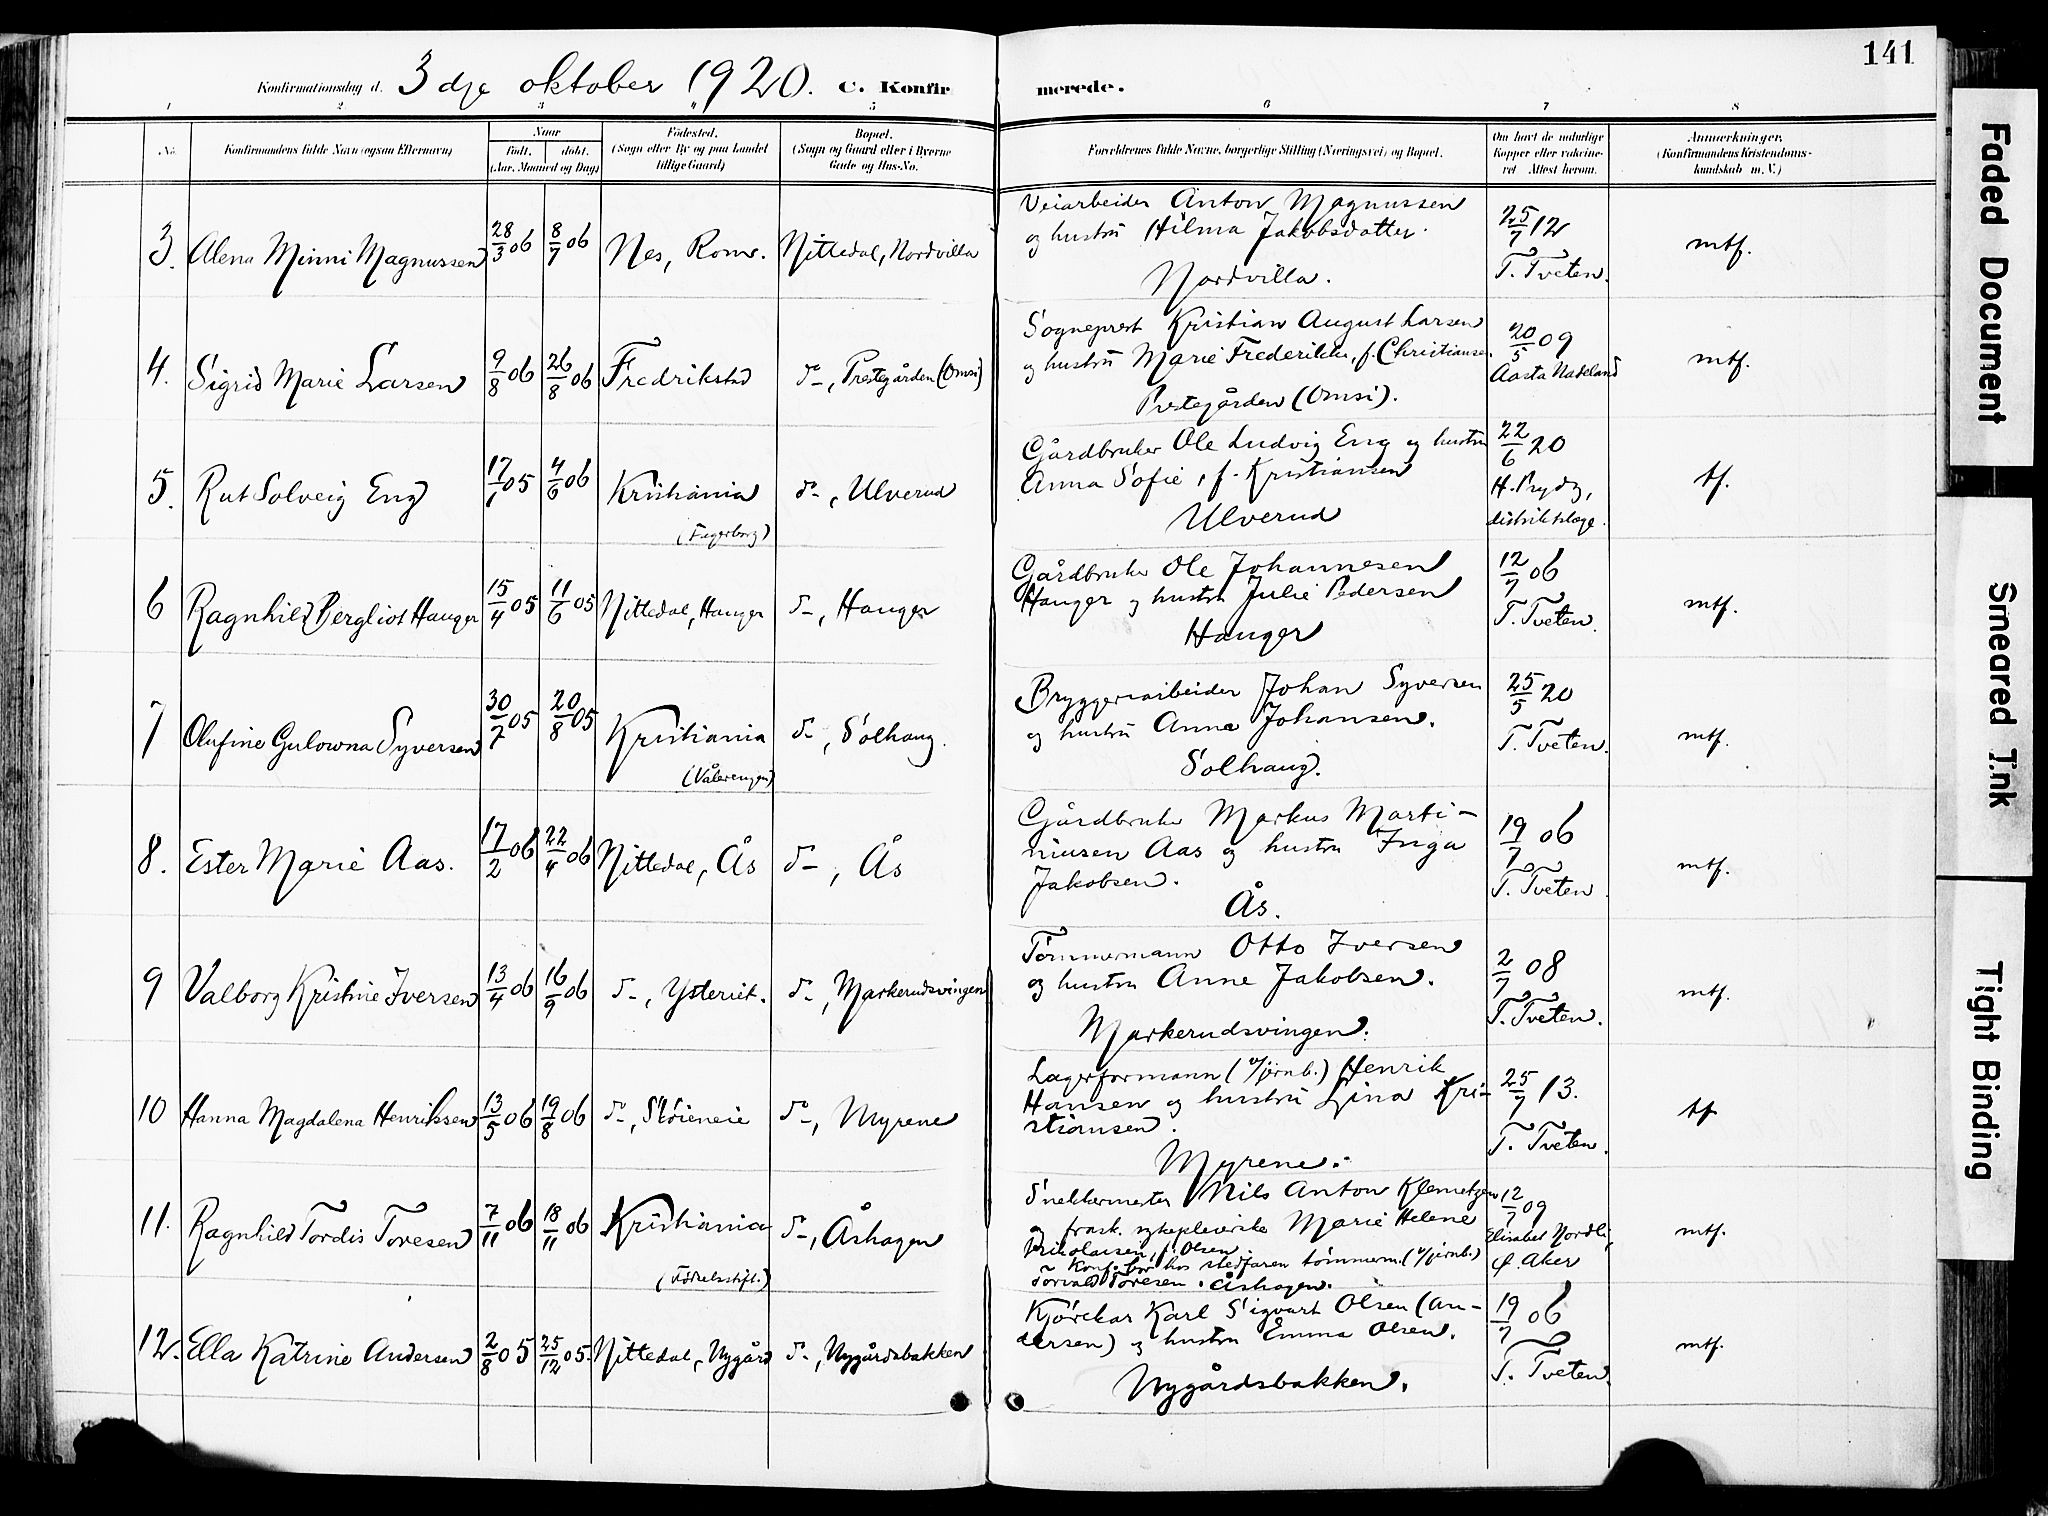 141
Konfirmationsdag d. 3dje oktober 1920. C. Konfirmerede.
1 2 3 4 5 6 7 8
No.
Konfirmandens fulde Navn (ogsaa Efternavn)
Naar
født. døbt.
(Aar, Maaned og Dag)
Fødested.
(Sogn eller By og paa Landet
tillige Gaard)
Bopæl.
(Sogn og Gaard eller i Byerne
Gade og Hus-No.
Forældrenes fulde Navne, borgerlige Stilling (Næringsvei) og Bopæl.
Om havt de naturlige
Kopper eller vakcine-
ret. Attest herom.
Anmærkninger.
(Konfirmandens Kristendoms-
kundskab m. V.)
3. Alena Minni Magnussen 28/3 06 8/7 06 Nes, Romr. Nittedal, Nordvilla
Veiarbeider Anton Magnussen
og hustru Hilma Jakobsdatter.
Nordvilla.
25/7 12
T. Tveten.
mtf.
4. Sigrid Marie Larsen 9/8 06 26/8 06 Fredrikstad do-, Prestegården (Omsi)
Sogneprest Kristian August Larsen
og hustru Marie Frederikke, f. Christiansen.
Prestegården (Omsi).
20/5 09
Aasta Nadeland
mtf.
5. Rut Solveig Eng 17/1 05 4/6 06 Kristiania
(Fagerborg)
do-, Ulverud
Gårdbruker Ole Ludvig Eng og hustru
Anna Sofie, f. Kristiansen
Ulverud
22/6 20
H. Prydz,
distriktslæge.
tf.
6 Ragnhild Bergliot Hauger 15/4 05 11/6 05 Nittedal, Hauger do-, Hauger
Gårdbruker Ole Johannesen
Hauger og hustru Julie Pedersen
Hauger
12/7 06
T. Tveten.
mtf.
7 Olufine Gulowna Syversen 30/7 05 20/8 05 Kristiania
(Vålerengen)
do-, Solhaug.
Bryggeriarbeider Johan Syversen
og hustru Anna Johansen.
Solhaug.
25/5 20
T. Tveten.
mtf.
8. Ester Marie Aas. 17/2 06 22/4 06 Nittedal, Ås do-, Ås
Gårdbruker Markus Marti-
niusen Aas og hustru Inga
Jakobsen.
Ås.
19/7 06
T. Tveten.
mtf.
9 Valborg Kristine Iversen 13/4 06 16/9 06 do-, Ysteriet. do-, Markerudsvingen
Tømmermann Otto Iversen
og hustru Anne Jakobsen.
Markerudsvingen.
2/7 08
T. Tveten.
mtf.
10 Hanna Magdalena Henriksen 13/5 06 19/8 06 do-, Skøieneie do-, Myrene
Lagerformann (v/jernb.) Henrik
Hansen og hustru Lina Kri-
stiansen.
Myrene.
25/7 13.
T. Tveten.
tf
11. Ragnhild Tordis Toresen 7/11 06 18/11 06 Kristiania
(Fødselsstift.)
do-, Åshagen
Snekkermester Nils Anton Klemetzen
og frask. sykepleierske Marie Helene
Nikolaisen, f. Olsen
Konf. bor hos stedfaren tømmerm. (v/jernb.)
Torvald Toresen. Åshagen.
12/7 09
Elisabet Nordli,
Ø. Aker
mtf.
12. Ella Katrine Andersen 2/8 05 25/12 05. Nittedal, Nygård do-, Nygårdsbakken
Kjørekar Karl Sigvart Olsen (An-
dersen) og hustru Emma Olsen.
Nygårdsbakken.
19/7 06
T. Tveten.
mtf.
Faded Document
Smeared Ink
Tight Binding